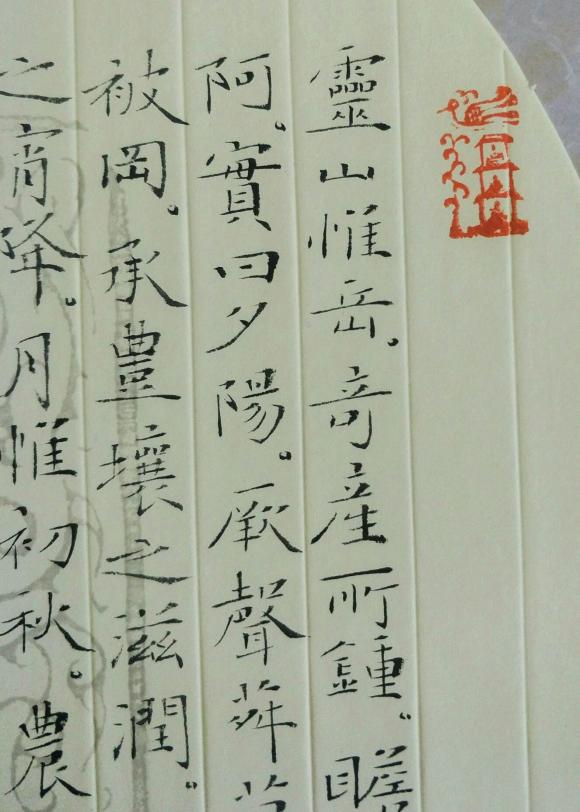 靈山惟岳。竒產所鍾。
阿。實曰夕陽。厥聲荈
被岡。承豊壤之滋潤。
之宵降。月惟初秋。農